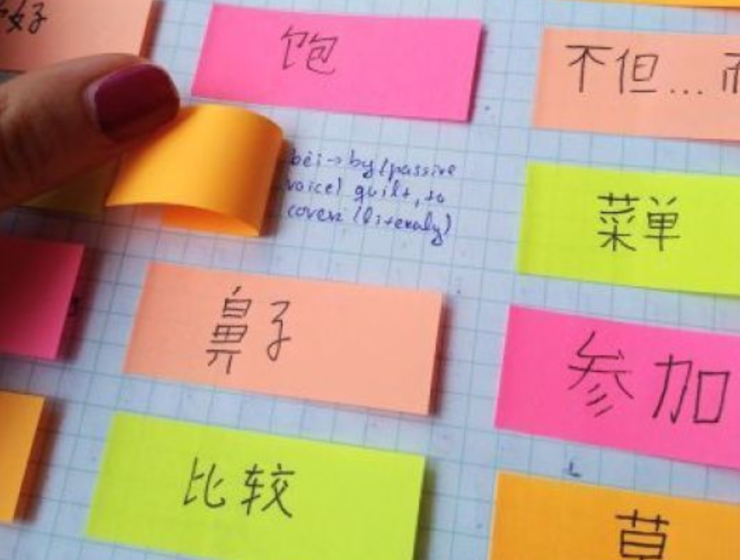 好
饱
不但...
bèi → by (passive
voice) quilt, to
cover (literaly)
菜单
鼻子
参加
比较
草